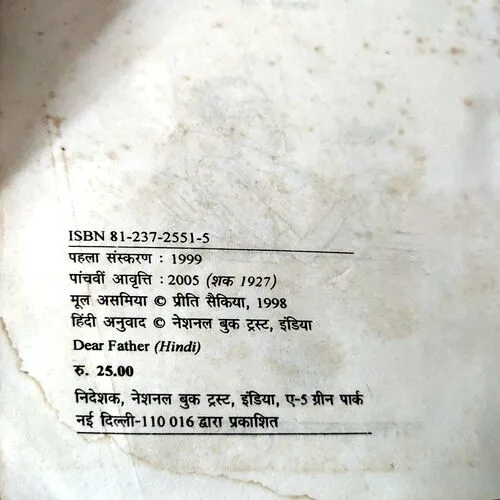 ISBN 81-237-2551-5
पहला संस्करण : 1999
पांचवीं आवृत्ति : 2005 (शक 1927)
मूल असमिया © प्रीति सैकिया, 1998
हिंदी अनुवाद © नेशनल बुक ट्रस्ट, इंडिया
Dear Father (Hindi)
रु. 25.00
निदेशक, नेशनल बुक ट्रस्ट, इंडिया, ए-5 ग्रीन पार्क
नई दिल्ली-110 016 द्वारा प्रकाशित